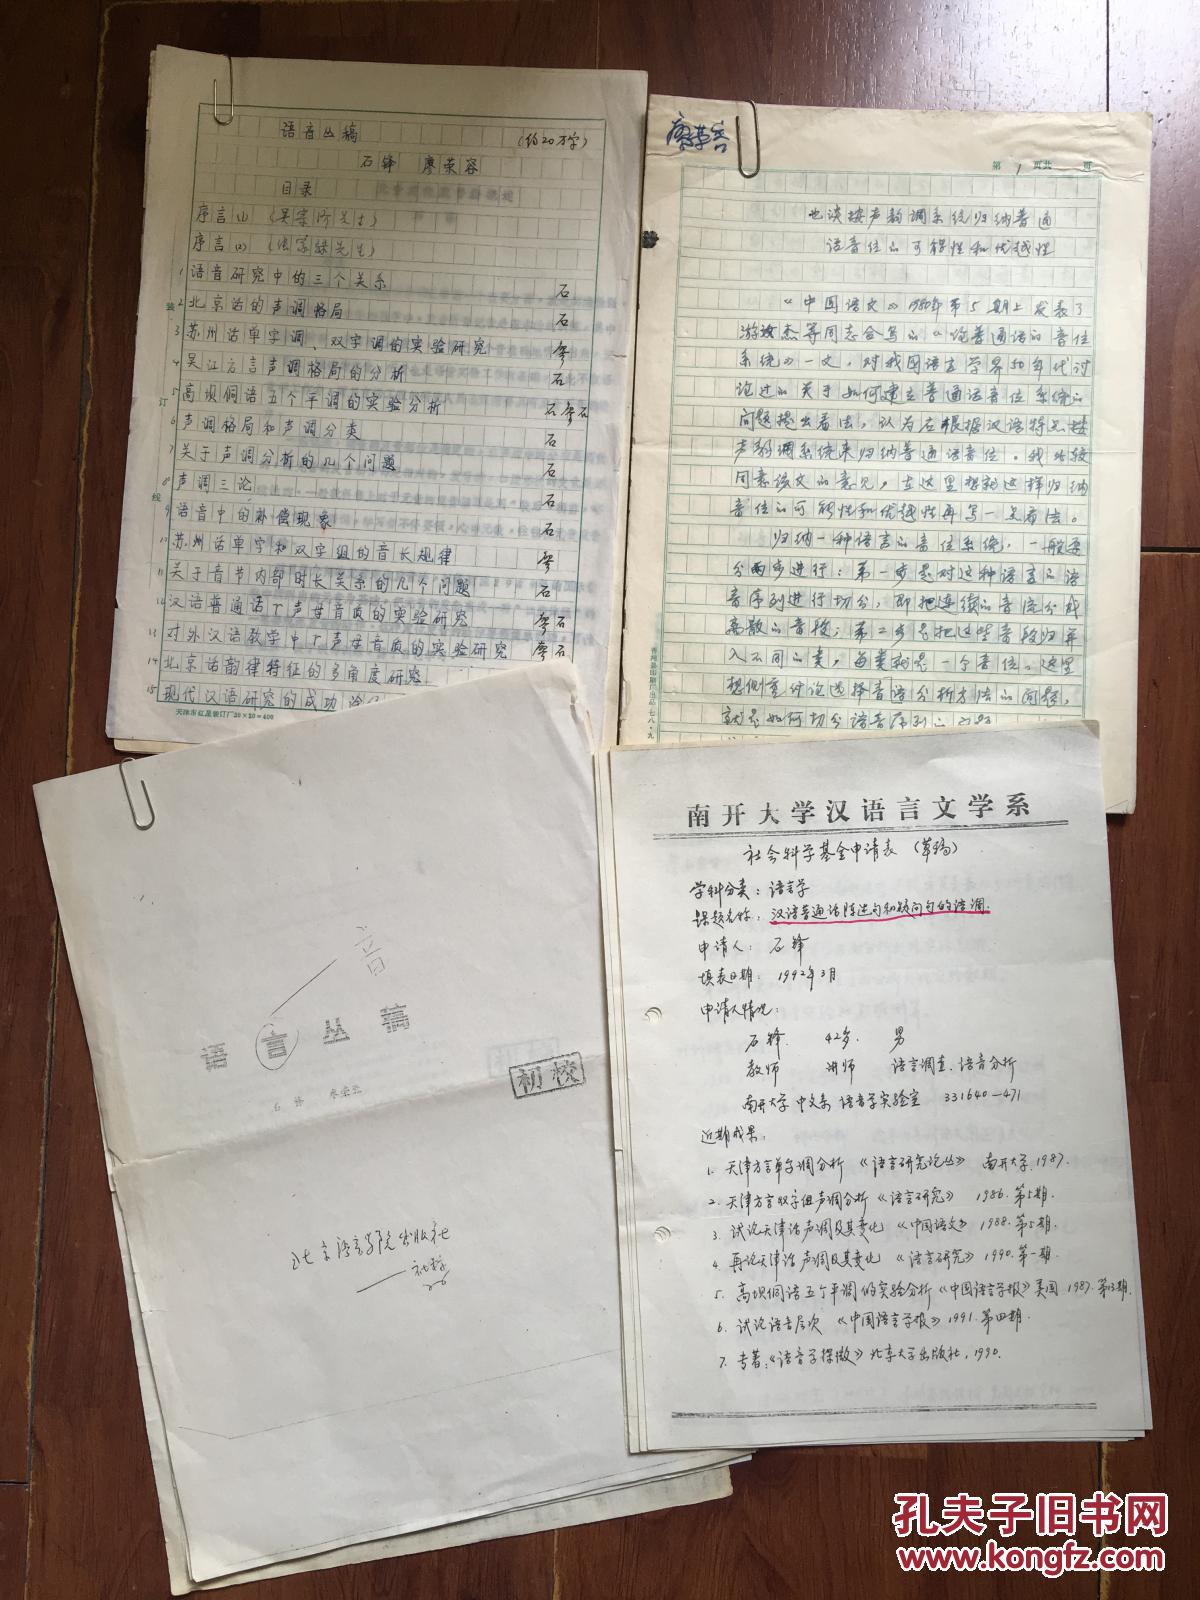 语音丛稿 (约20万字)
石锋 廖荣容
目录
序言(1) (吴宗济先生)
序言(2) (
先生)
1 语音研究中的三个关系 石
2 北京话的声调格局 石
3 苏州话单字调、双字调的实验研究 廖
4 吴江方言声调格局的分析 石
5 高坝侗语五个平调的实验分析 石廖石
6 声调格局和声调分类 石
7 关于声调分析的几个问题 石
8 声调三论 石
9 语音中的补偿现象 石
10 苏州话单字和双字组的音长规律 廖
11 关于音节内部时长关系的几个问题 石
12 汉语普通话r声母音质的实验研究 廖石
13 对外汉语教学中r声母音质的实验研究 廖石
14 北京话韵律特征的多角度研究
15 现代汉语研究的成功
装
订
线
天津市红星装订厂20×20=400
廖荣容
第 1 页共 页
也谈按声韵调系统归纳普通
话音位的可能性和优越性
《中国语文》1980年第5期上发表了
游汝杰等同志合写的《论普通话的音位
系统》一文,对我国语言学界50年代讨
论过的关于如何建立普通话音位系统的
问题提出看法,认为应根据汉语特点按
声韵调系统来归纳普通话音位。我比较
同意该文的意见,在这里想就这样归纳
音位的可能性和优越性再写一点看法。
归纳一种语言的音位系统,一般要
分两步进行:第一步是对这种语言的语
音序列进行切分,即把连续的音流分成
离散的音段;第二步是把这些音段归并
入不同的类,每类就是一个音位。这里
想侧重讨论选择音位分析方法的问题,
就是如何切分语音序列的问题
音
语言丛稿
石锋 廖荣容
初校
北京语言学院出版社
南开大学汉语言文学系
社会科学基金申请表(草稿)
学科分类:语言学
课题名称:汉语普通话陈述句和疑问句的语调.
申请人: 石锋
填表日期: 1992年3月
申请人情况:
石锋. 42岁. 男
教师 讲师 语言调查.语音分析
南开大学 中文系 语音学实验室 331640—471
近期成果.
1. 天津方言单字调分析 《语言研究论丛》 南开大学.1987.
2. 天津方言双字组声调分析《语言研究》 1986.第5期.
3. 试论天津话声调及其变化 《中国语文》 1988.第5期.
4. 再论天津话声调及其变化 《语言研究》 1990.第一期.
5. 高坝侗语五个平调的实验分析《中国语言学报》美国 1987.第13期.
6. 试论语音层次 《中国语言学报》1991.第四期.
7. 专著:《语音学探微》北京大学出版社,1990.
孔夫子旧书网
www.kongfz.com